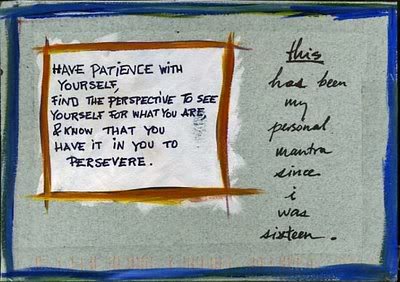 HAVE PATIENCE WITH
YOURSELF,
FIND THE PERSPECTIVE TO SEE
YOURSELF FOR WHAT YOU ARE,
& KNOW THAT YOU
HAVE IT IN YOU TO
PERSEVERE.
this
has been
my
personal
mantra
since
i
was
sixteen.